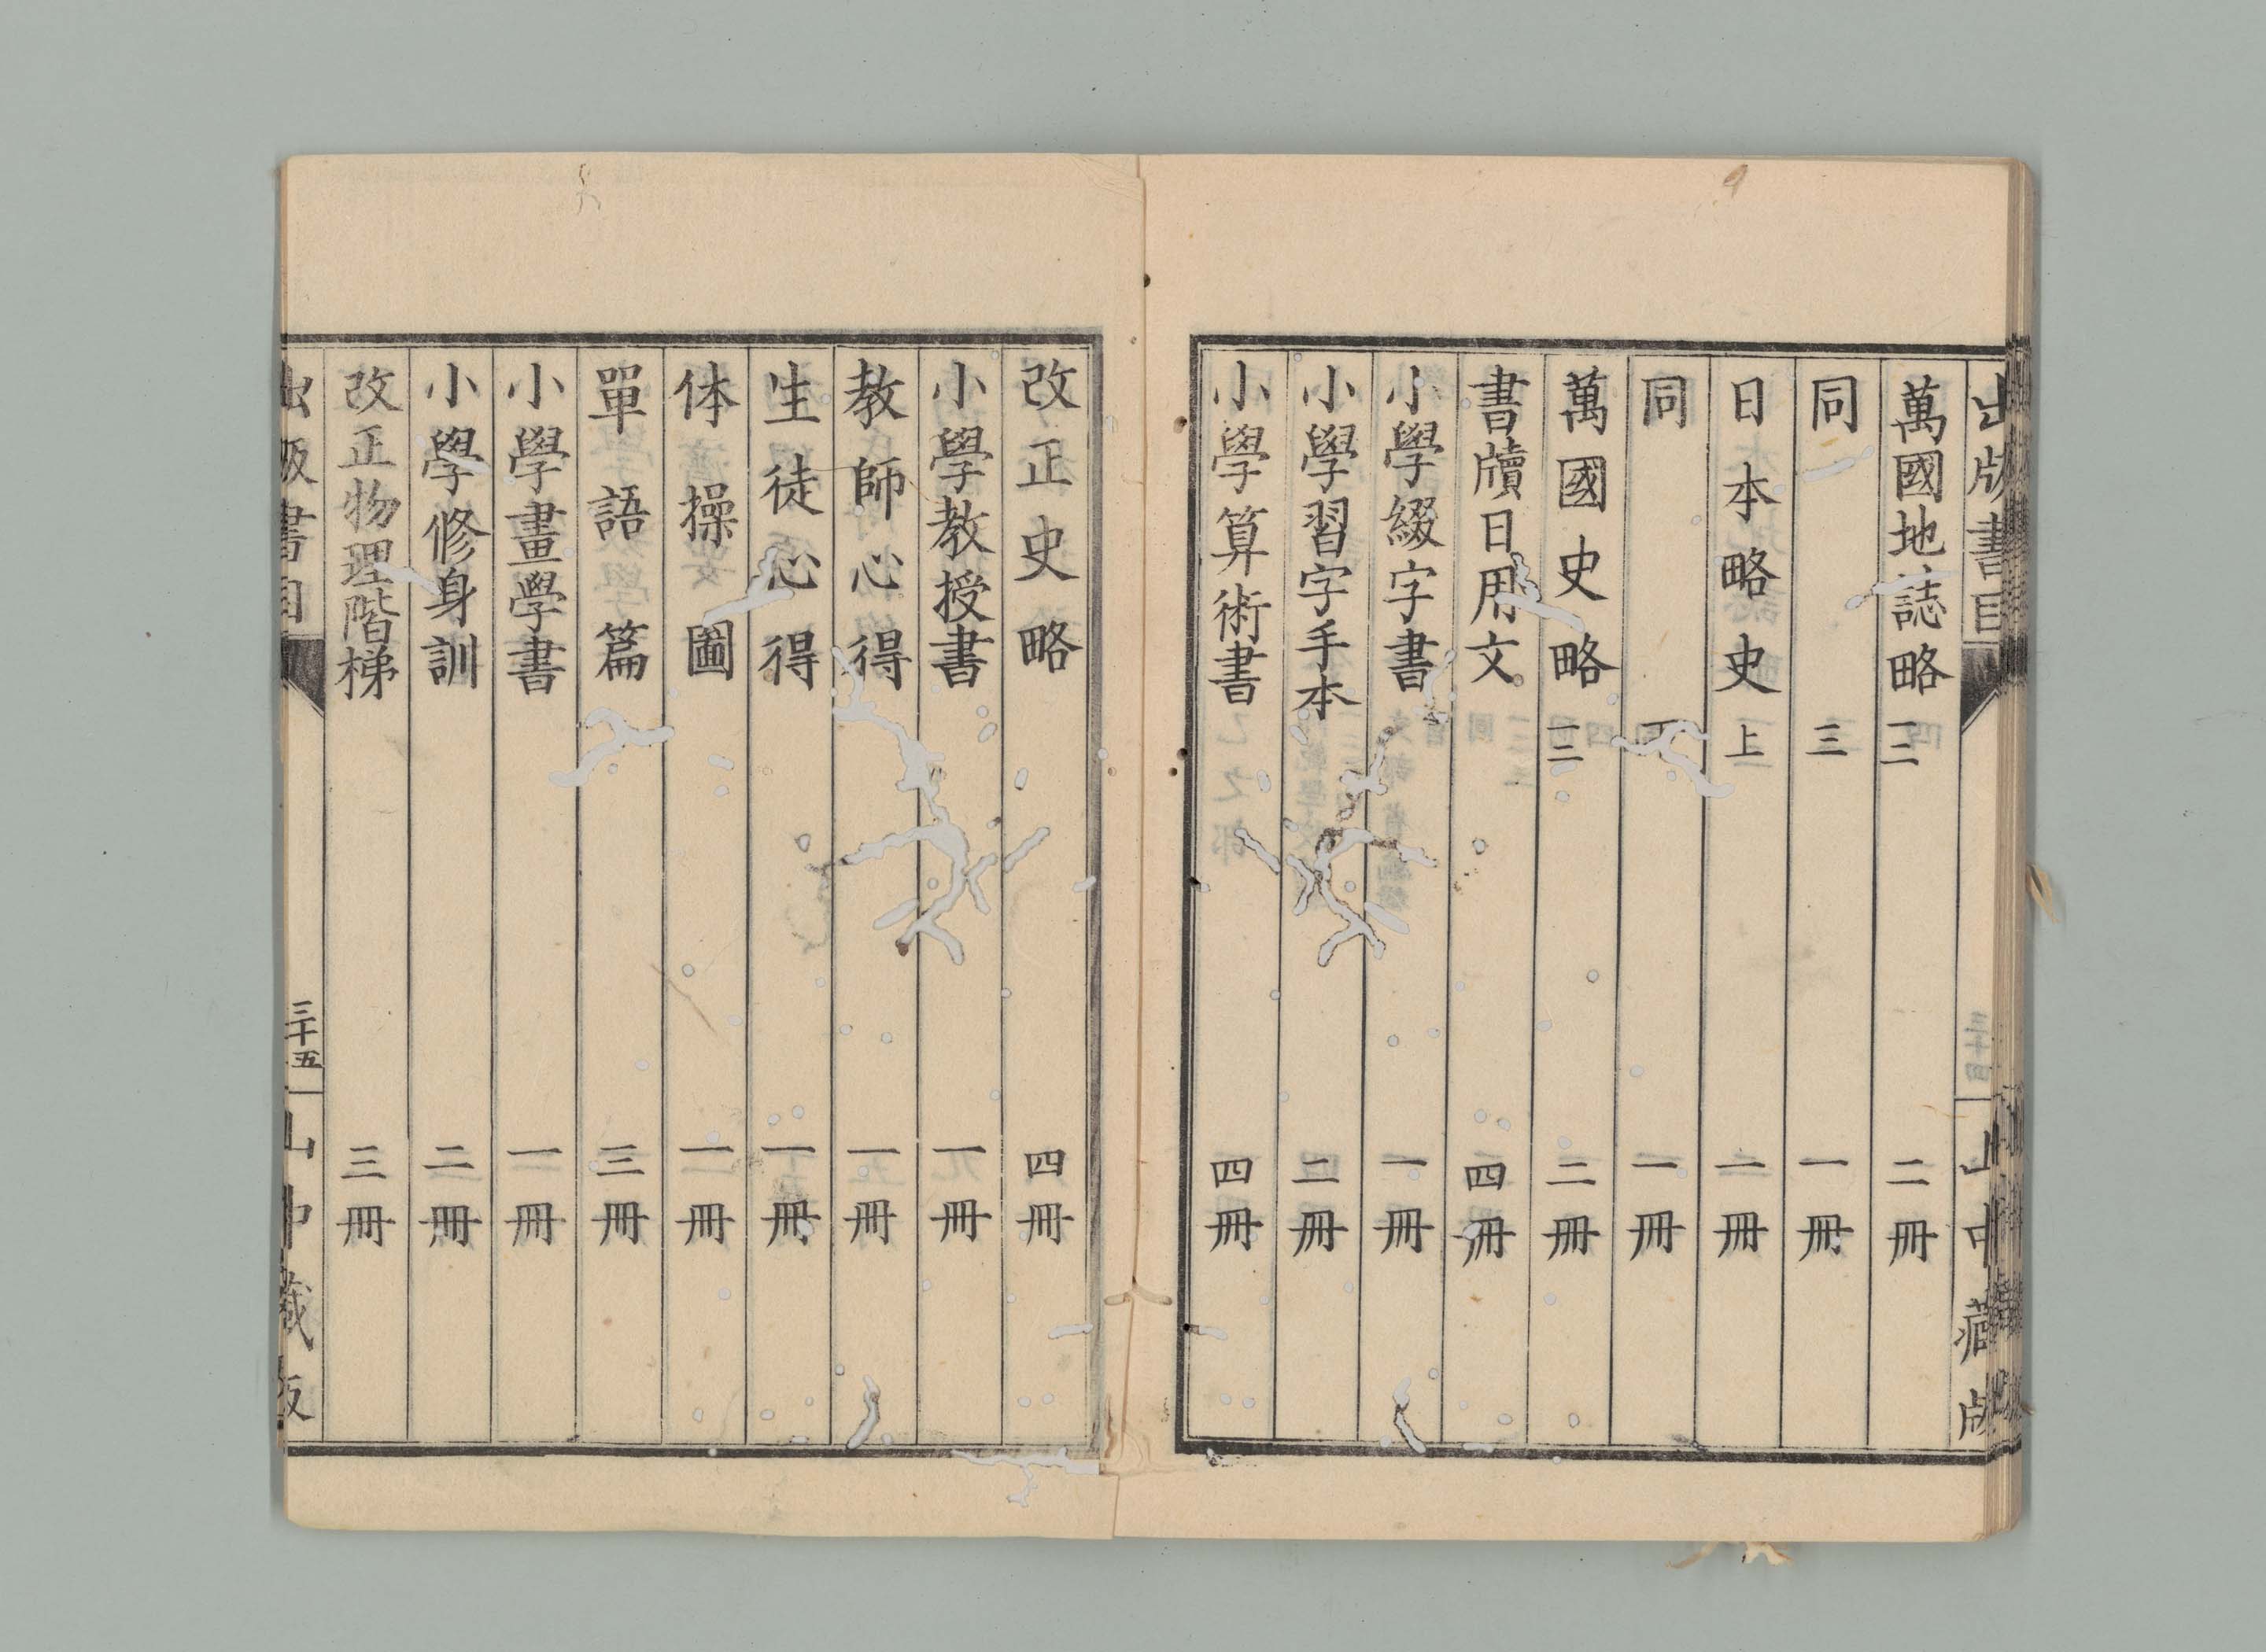 出版書目
山中藏版
萬國地誌略 一二 二冊
同 三 一冊
日本略史 上 一冊
同 一冊
萬國史略 一二 二冊
書牘日用文 四冊
小學綴字書 一冊
小學習字手本 二冊
小學算術書 四冊
改正史略 四冊
小學教授書 一冊
教師心得 一冊
生徒心得 一冊
体操圖 一冊
單語篇 三冊
小學畫學書 一冊
小學修身訓 二冊
改正物理階梯 三冊
出版書目 三十五 山中藏版